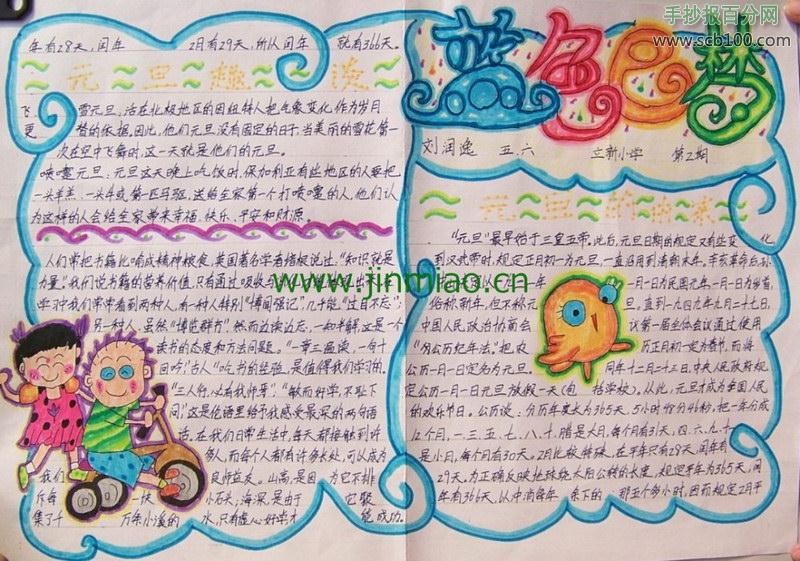 手抄报百分网
www.scb100.com
蓝色色梦
刘润逸 五.六 立新小学 第2期
年有28天,闰年 2月有29天,所以闰年 就有366天。
元旦趣谈
飞雪元旦:活在北极地区的因纽特人把气象变化作为岁月
更替的依据,因此,他们元旦没有固定的日子,当美丽的雪花第一
次在空中飞舞时,这一天就是他们的元旦。
喷嚏元旦:元旦这天晚上吃饭时,保加利亚有些地区的人要把
一头羊羔、一头牛或第一匹马驹,送给全家第一个打喷嚏的人,他们认
为这样的人会给全家带来幸福、快乐、平安和财源。
人们常把书籍比喻成精神粮食,英国著名学者培根说过:"知识就是
力量"我们说书籍的营养价值,只有通过吸收
学习中我们常常看到两种人,有一种人特别"博闻强记",几乎能"过目不忘";
另一种人,虽然"博览群书",然而边读边忘,一知半解,这是一个
读书的态度和方法问题。"一章三遍读,一句十
回吟"古人的吟书经验,是值得我们学习的。
"三人行,必有我师焉","敏而好学,不耻下
问"这是伦语里给予我感受最深的两句语
活。在我们日常生活中,每天都接触到许
多人,而每个人都有许多长处,可以成为
我们 良师益友。山高,是因 为它不排
斥每 一快 小石头,海深,是由于 它聚
集了千 万年小溪的 水,只有虚心好学才 能成功。
元旦的由来
"元旦"最早始于三皇五帝。此后,元旦日期的规定又有些变 化
到汉武帝时,规定正月初一为元旦,一直沿用到清朝末年。辛亥革命后孙
一月一日为民国元年一月一日为春节,
俗称新年,但不称元 旦。直到一九四九年九月二十七日,
中国人民政治协商会 议第一届全体会议通过使用
"公历纪年法。"把农 历正月初一定为春节,而将
公历一月一日定为元旦。 同年十二月二十三日,中央人民政府规
定公历一月一日元旦放假一天(包 括学校)。从此,元旦才成为全国人民
的欢乐节日。公历说:分历年度太为365天,5小时48分46秒,把一年分成
12个月,一、三、五、七、八、十、腊是大月,每个月有31天,四、六、九、十一
是小月,每个月有30天。2月比较特殊,在平年只有28天,闰年有
29天,为正确反映地球绕太阳公转的长度,规定平年为365天,闰
年有366天,从中消每年 余下的 那五个多小时,因而规定2月平
www.jinmiao.cn